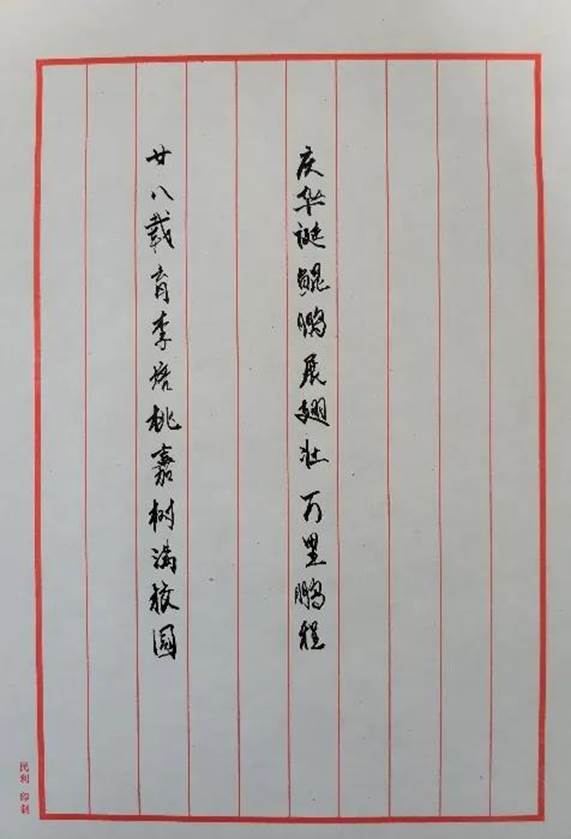 庆华诞鲲鹏展翅壮万里鹏程
廿八载育李培桃嘉树满校园
民利印制